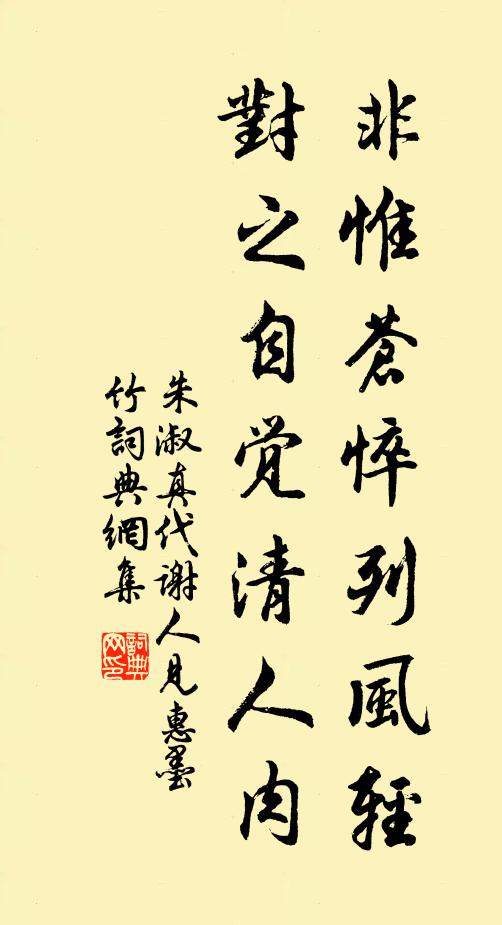 非惟蒼悴列風輕
對之自覺清人肉
朱淑真代謝人見惠墨
竹詞典網集
詞典网印